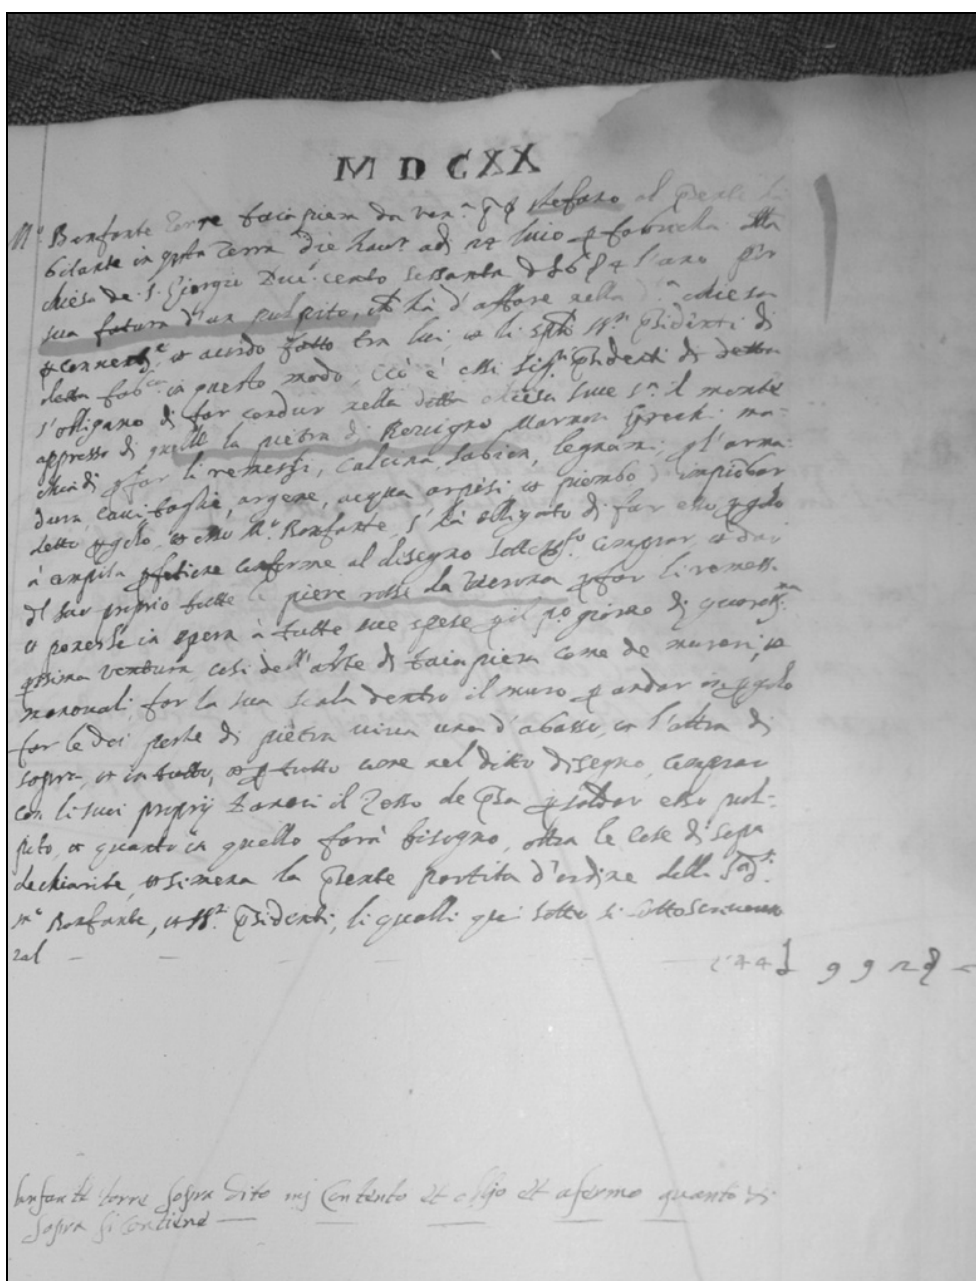 MDCXX
M.º Bonfante Torre taiapiera da Ven.ª stefano al
bitante in qsta Terra die haver adi 24 luio p fabricha della
chiesa de S. Giorgio Ducento sessanta l'uno per
sua fatura d'un pulpito, ch hà d'affare nella d.ª chiesa
et acordo fatto tra lui, et li SS.ri Psidenti di
detta fab.ca in questo modo, ciò è chi Sig.ri Psidenti di detta
s'obligano di far condur nella detta chiesa sive s.ª il monte
appresso di quelle la pietra di Rovigno Marmori Grechi ma-
chiadi p far li remessi, Calcina, Sabion, legnami, p l'arma
dura, cavi taglie, argene, acqua arpesi et piombo d impiõbar
detto pgolo, et esso M.º Bonfante s'hà obligato di far esso pgolo
à compita pfetione conforme al disegno sottosc.to comprar, et dar
dl suo proprio tutte le piere rosse da Verona p far li remessi
et ponerle in opera à tutte sue spese p il p.º giorno di quares.ma
pssima ventura cosi dell'arte di taiapiera come de mureri, et
manovali, far la sua scala dentro il muro p andar in pgolo
far le doi porte di pietra viva una d'abasso, et l'altra di
sopra, et in tutto, et p tutto come nel ditto disegno, comprar
con li suoi proprij danari il Zesso de psa p saldar esso pul-
pito, et quanto in quello farà bisogno, oltra le cose di sopa
dechiarite, la psente partita d'ordine delli
m.º Bonfante, et SS.ri Psidenti, li qualli qui sotto si sottoscriverano
val
bonfante torre sopra dito mj Contento et obligo et afermo quanto di
sopra si contiene